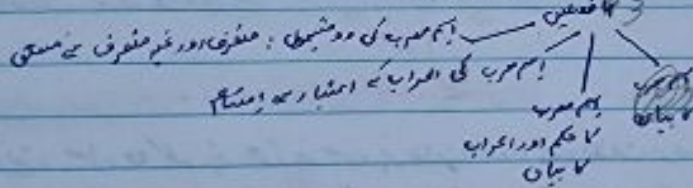 3 فصلیں
اسم معرب کی دو قسموں : منصرف اور غیر منصرف سے متعلق
اسم معرب کی اعراب کے اعتبار سے اقسام
اسم معرب
کا حکم اور اعراب
کا بیان
اسم معرب
کا بیان